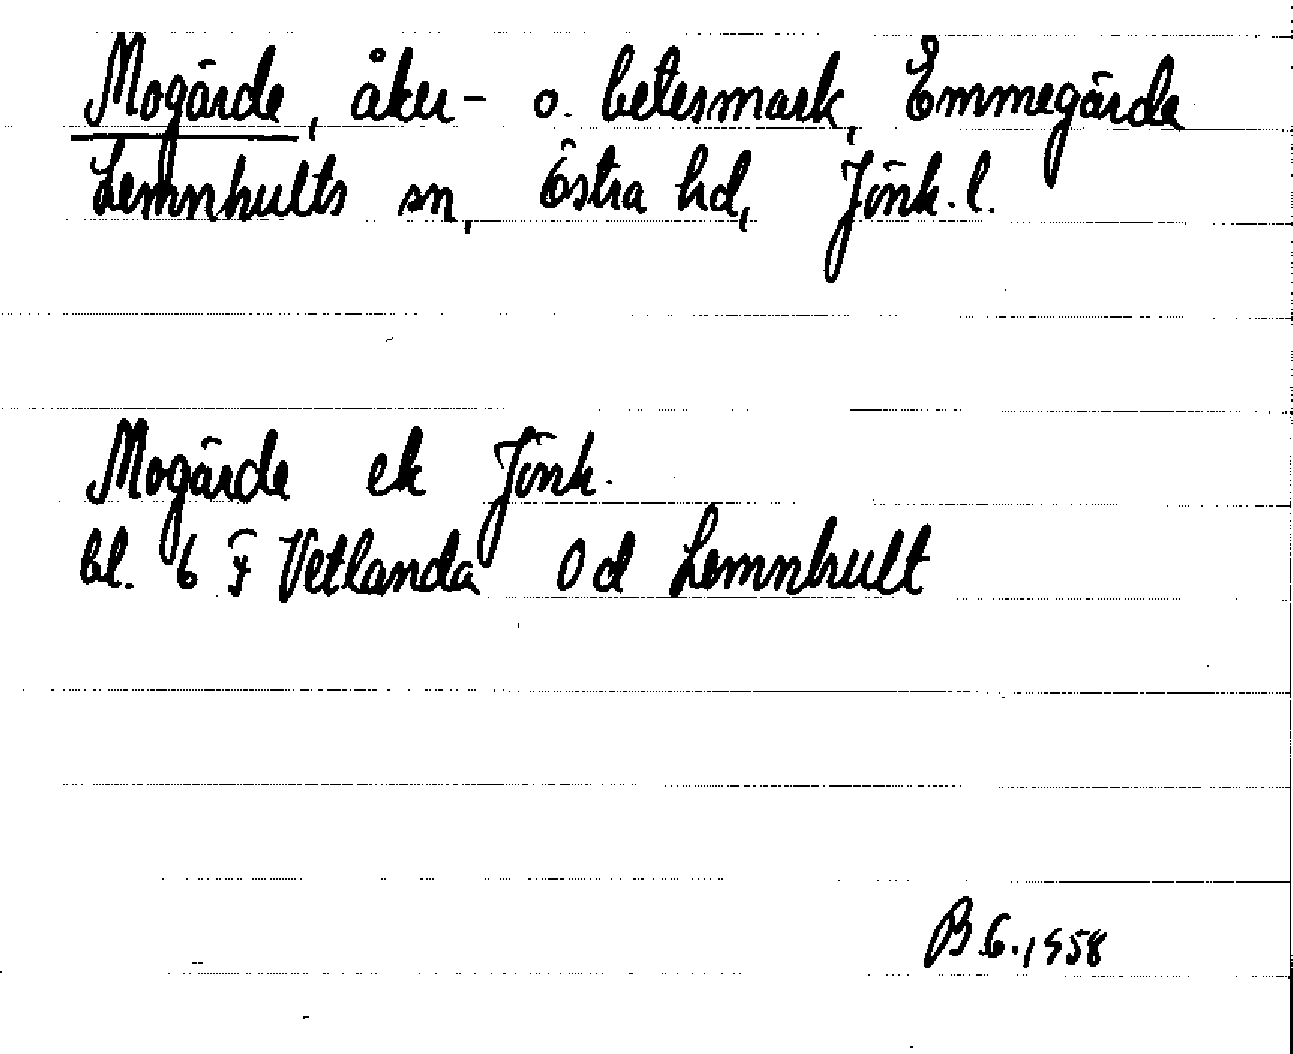 Mogärde, åker- o. betesmark, Emmegärde
Lemnhults sn, Östra hd, Jönk. l.
Mogärde ek Jönk.
bl. 6 F Vetlanda 0 d Lemnhult
B G. 1958